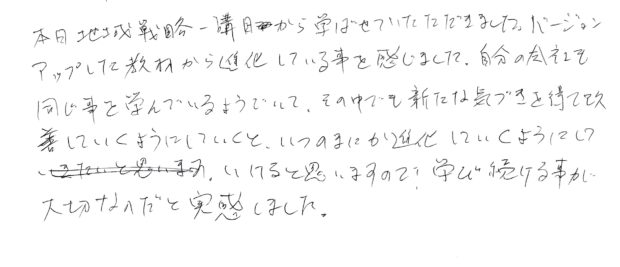 本日地域戦略一講目から学ばせていただきました。バージョン
アップした教材から進化している事を感じました。自分の会社も
同じ事を学んでいるようでいて、その中でも新たな気づきを得て改
善していくようにしていくと、いつのまにか進化していくようにして
いきたいと思います。いけると思いますので、学び続ける事が
大切なんだと実感しました。